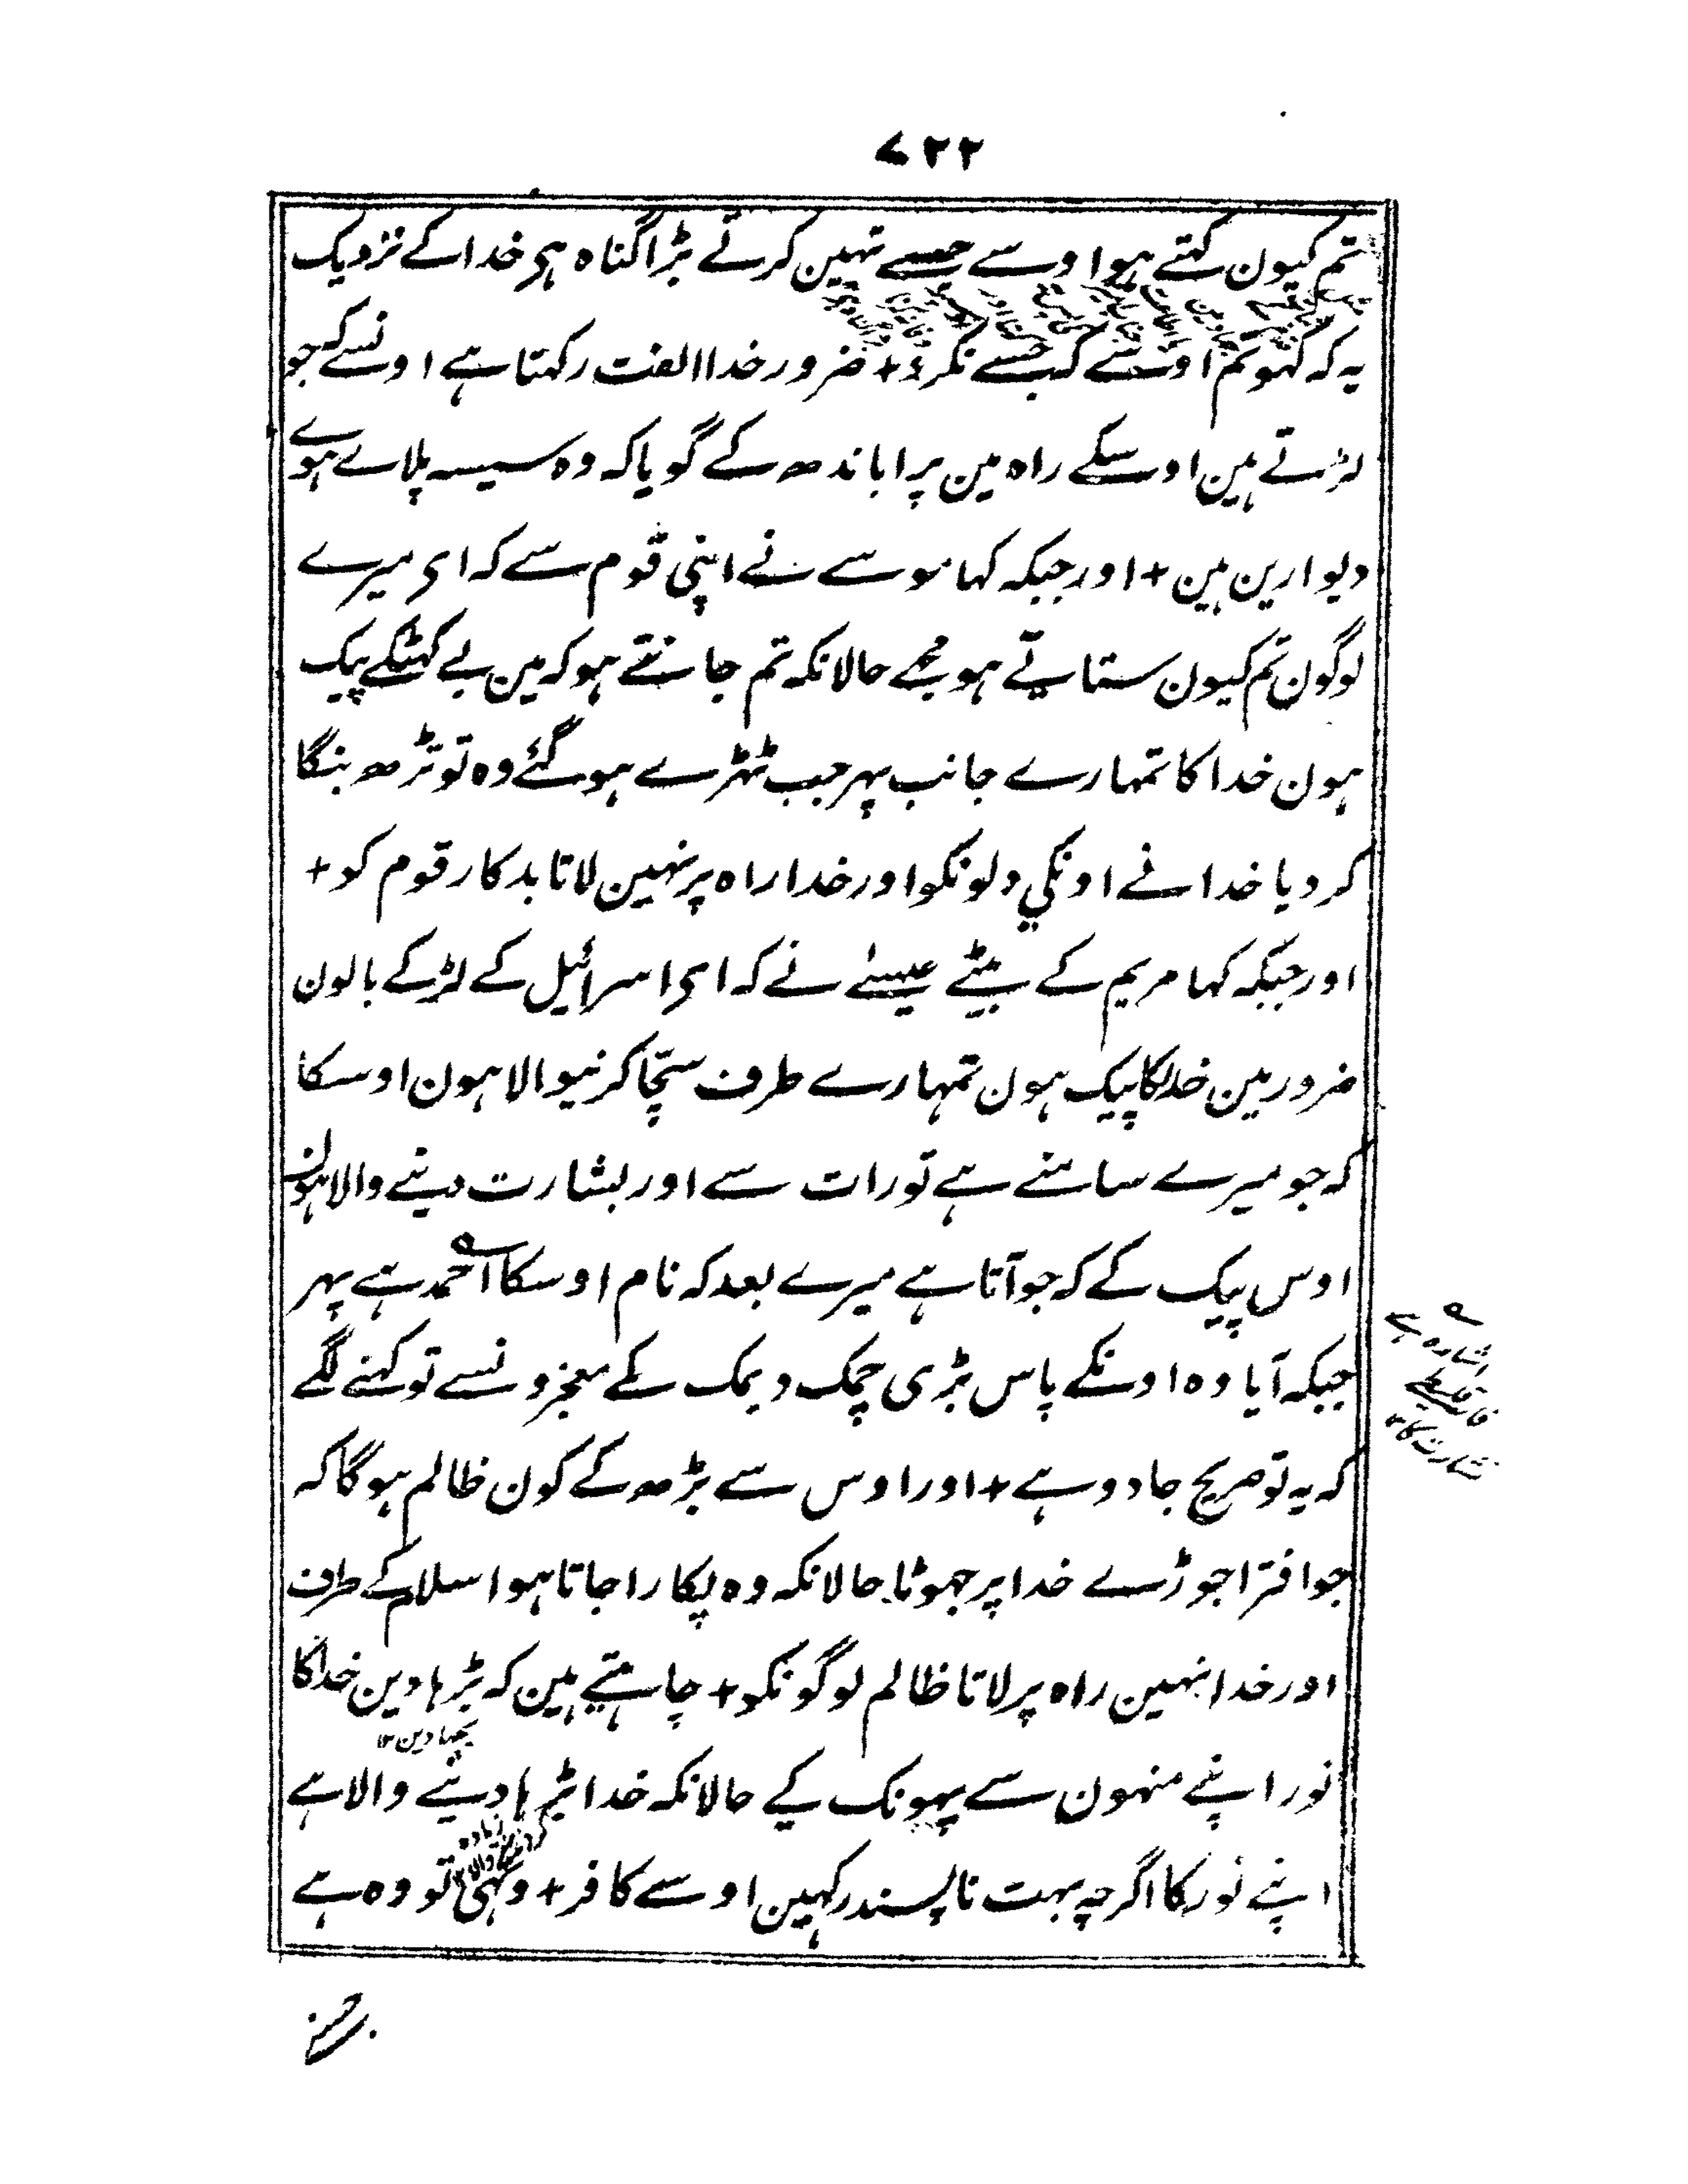 ۷۲۲
تم کیون کہتے ہو اوسے جسے نہین کرتے بڑا گناہ ہی خدا کے نزدیک
یہ کہ کہو تم اوسے کہ جسے نکرو + ضرور خدا الفت رکہتا ہے اونسے کہ جو
لڑتے ہین اوسکے راہ مین پرا باندھ کے گویا کہ وہ سیسہ پلاے ہوے
دیوارین ہین + اور جبکہ کہا موسے نے اپنی قوم سے کہ ای میرے
لوگون تم کیون ستاتے ہو مجھے حالانکہ تم جانتے ہو کہ مین بے کہٹکے پیک
ہون خدا کا تمہارے جانب پہر جب ٹہڑے ہو گئے وہ تو ٹڑھ بنگا
کردیا خدا نے اونکي دلونکو اور خدا راہ پر نہین لاتا بدکار قوم کو +
اور جبکہ کہا مریم کے بیٹے عیسےٰ نے کہ ای اسرائیل کے لڑکے بالون
ضرور مین خدا کا پیک ہون تمہارے طرف سچّا کرنیوالا ہون اوسکا
کہ جو میرے سامنے ہے تورات سے اور بشارت دینے والا ہون
اوس پیک کے کہ جو آتا ہے میرے بعد کہ نام اوسکا احمد ہے پہر
جبکہ آیا وہ اونکے پاس بڑی چمک دمک کے معجزونسے تو کہنے لگے
کہ یہ تو صریح جادو ہے + اور اوس سے بڑھ کے کون ظالم ہو گا کہ
جو افترا جوڑے خدا پر جہوٹا حالانکہ وہ پکارا جاتا ہو اسلام کے طرف
اور خدا نہین راہ پر لاتا ظالم لوگونکو + چاہتے ہین کہ بڑہا دین خدا کا
بجہا دین ۱۲
نور اپنے منہون سے پہونک کے حالانکہ خدا ٹیرہا دینے والا ہے
اپنے نور کا اگرچہ بہت ناپسند رکہین اوسے کافر + وہی تو وہ ہے
اشارہ ہے
فارقلیطے
بشارت کا ۱۲